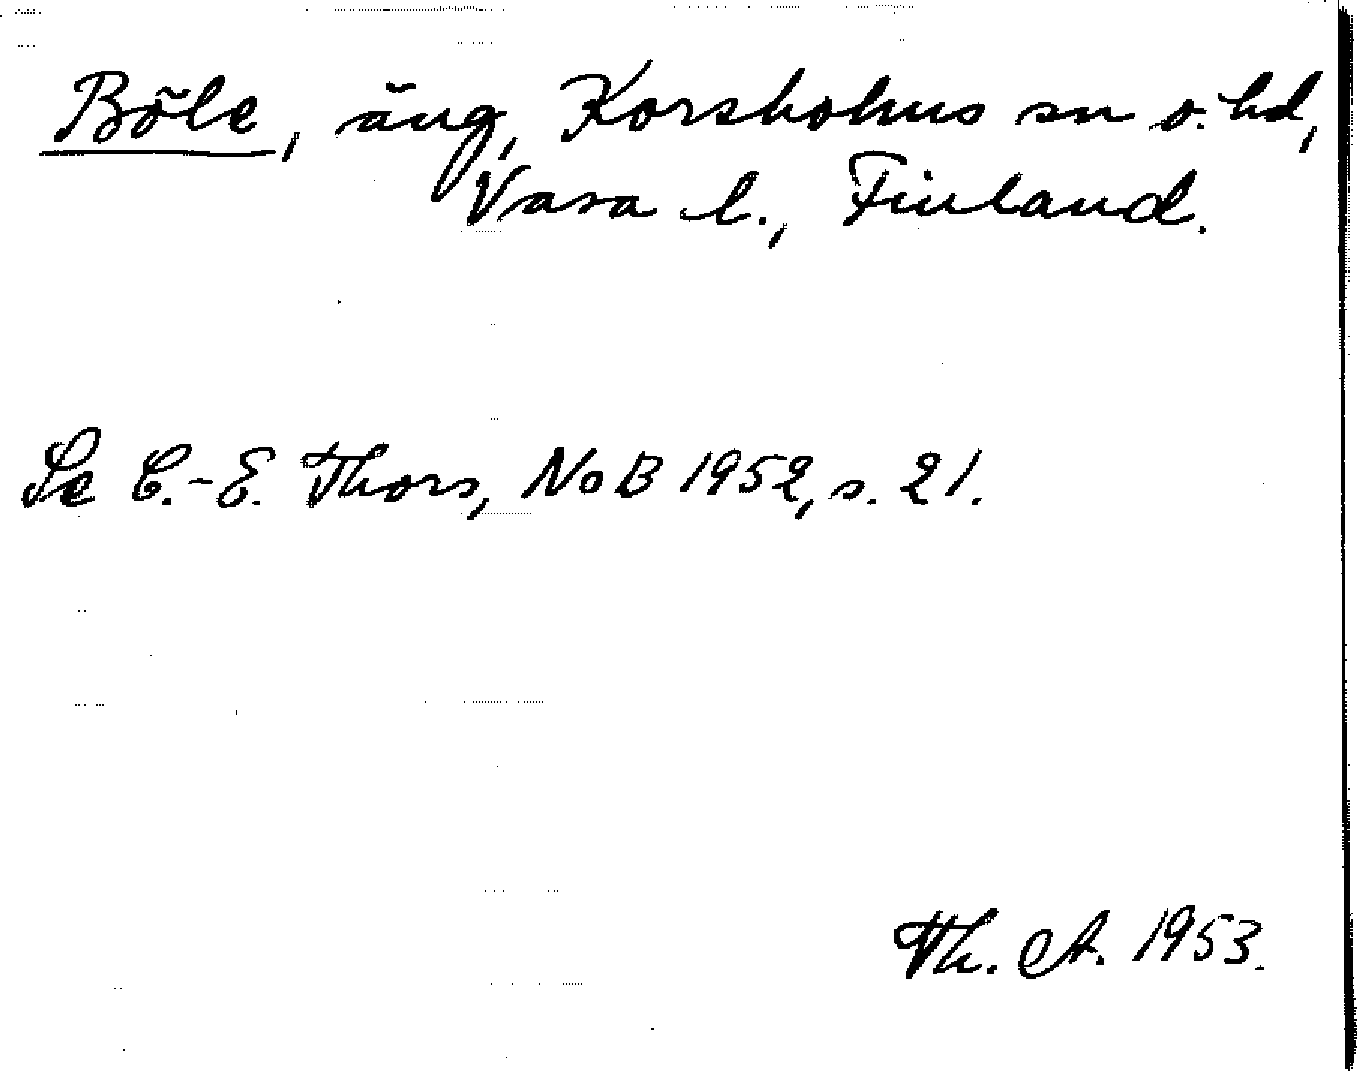 Böle, äng, Korsholms sn o. hd,
Vasa l., Finland.
Se C.-E. Thors, NoB 1952, s. 21.
Th. A. 1953.